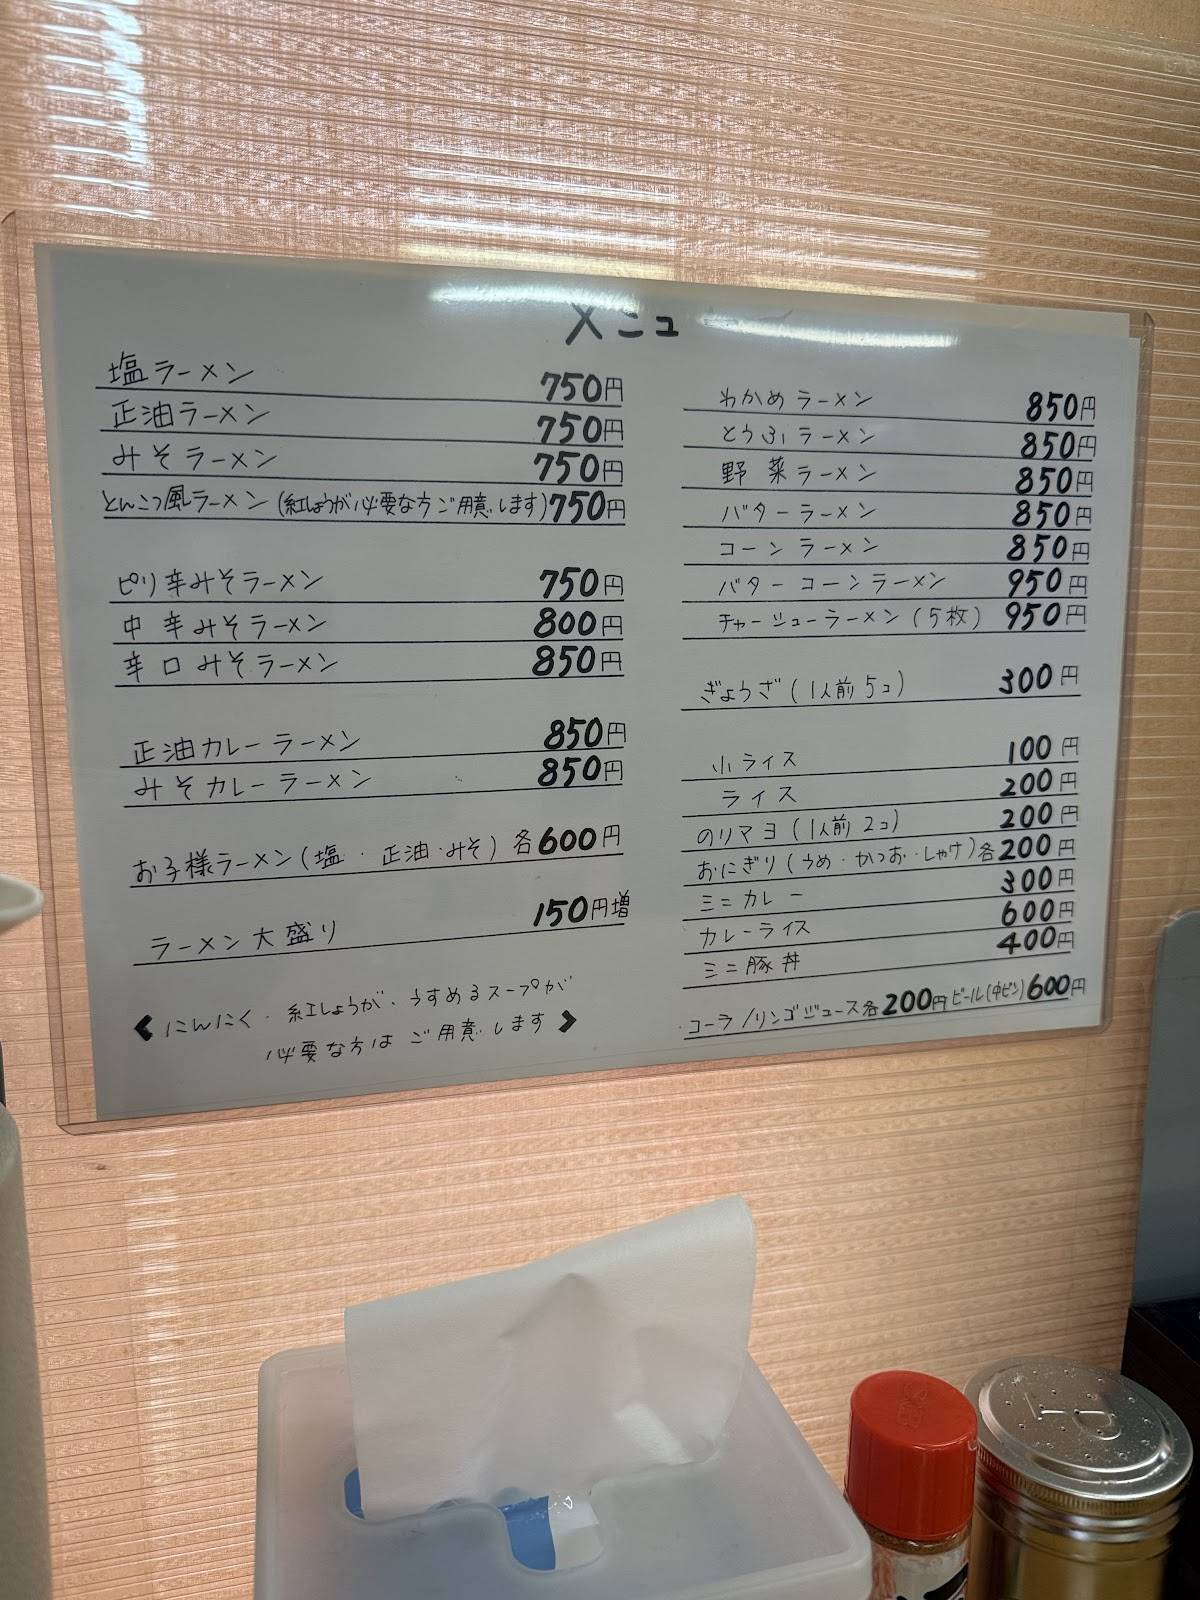 メニュー
塩ラーメン 750円
正油ラーメン 750円
みそラーメン 750円
とんこつ風ラーメン(紅しょうが必要な方ご用意します) 750円
ピリ辛みそラーメン 750円
中辛みそラーメン 800円
辛口みそラーメン 850円
正油カレーラーメン 850円
みそカレーラーメン 850円
お子様ラーメン(塩・正油・みそ) 各600円
ラーメン大盛り 150円増
<にんにく・紅しょうが・うすめるスープが
必要な方はご用意します>
わかめラーメン 850円
とうふラーメン 850円
野菜ラーメン 850円
バターラーメン 850円
コーンラーメン 850円
バターコーンラーメン 950円
チャーシューラーメン(5枚) 950円
ぎょうざ(1人前5コ) 300円
小ライス 100円
ライス 200円
のりマヨ(1人前2コ) 200円
おにぎり(うめ・かつお・しゃけ)各200円
ミニカレー 300円
カレーライス 600円
ミニ豚丼 400円
コーラ/リンゴジュース各200円 ビール(中ビン)600円